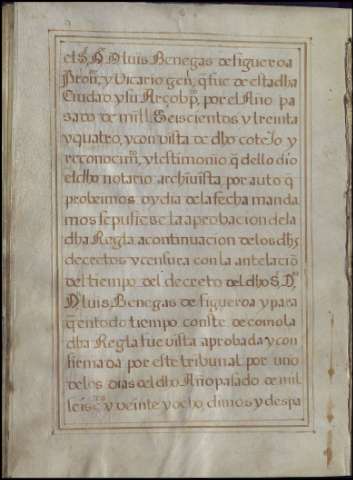 el S. D. D luis Benegas de figueroa
Proũ, y Vicario geñ, q̃ fue de esta dha
Ciudad y su Arçobp̃, por el Año pa
sado de mill Seiscientos y treinta
y quatro, y con vista de dho cotejo y
reconocim̃, y testimonio q̃ dello dio
el dho notario archiuista por auto q̃
probeimos oy dia de la fecha manda
mos se pusiese la aprobacion de la
dha Regla a continuacion de los dhs
decretos y censura con la antelaciõ
del tiempo del decreto del dho S. Dr
D luis Benegas de figueroa y para
q̃ en todo tiempo conste de como la
dha Regla fue vista aprobada y con
firmada por este tribunal por uno
de los dias del dho Año pasado de mil
seisç.s y veinte y ocho, dimos y despa